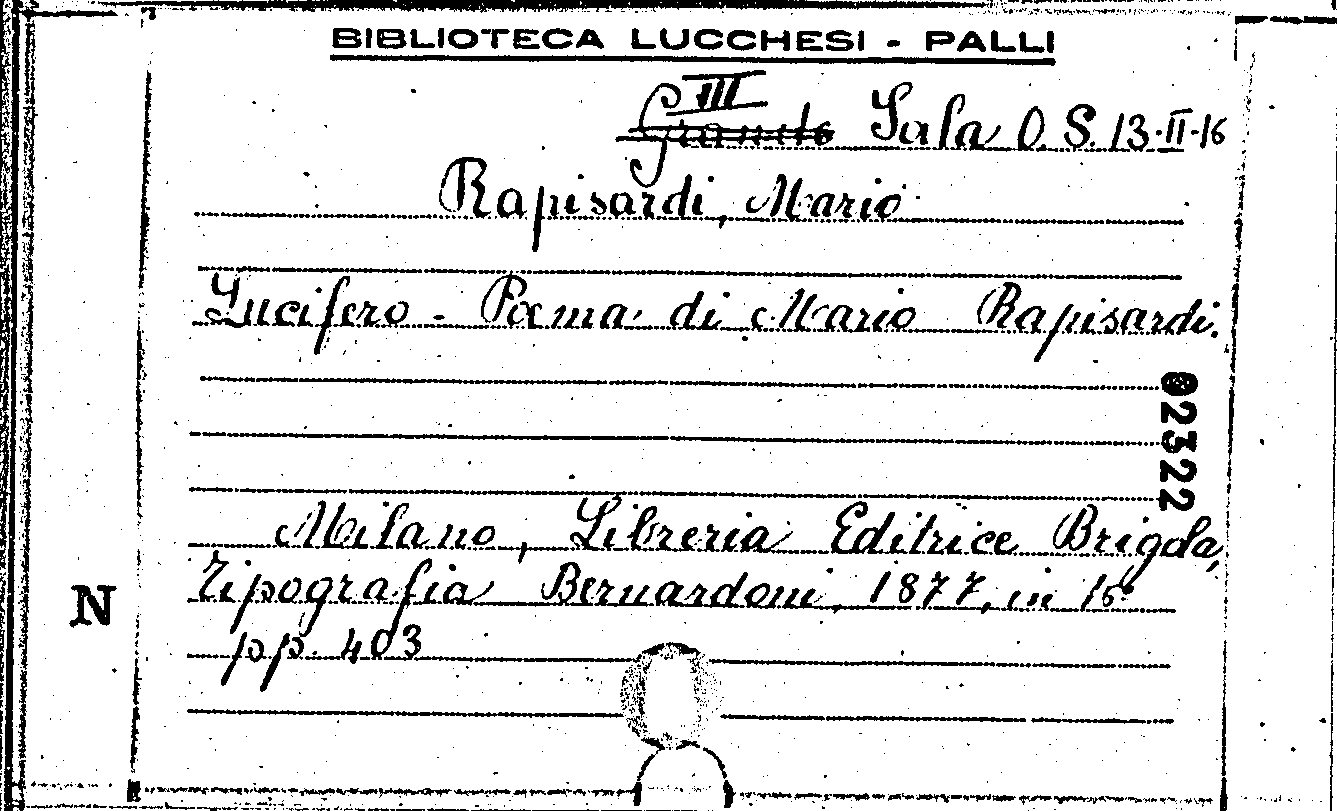 BIBLIOTECA LUCCHESI - PALLI
III
Grande Sala O. S. 13-II-16
Rapisardi, Mario
Lucifero - Poema di Mario Rapisardi.
02322
Milano, Libreria Editrice Brigola,
Tipografia Bernardoni, 1877, in 16°
pp. 403
N